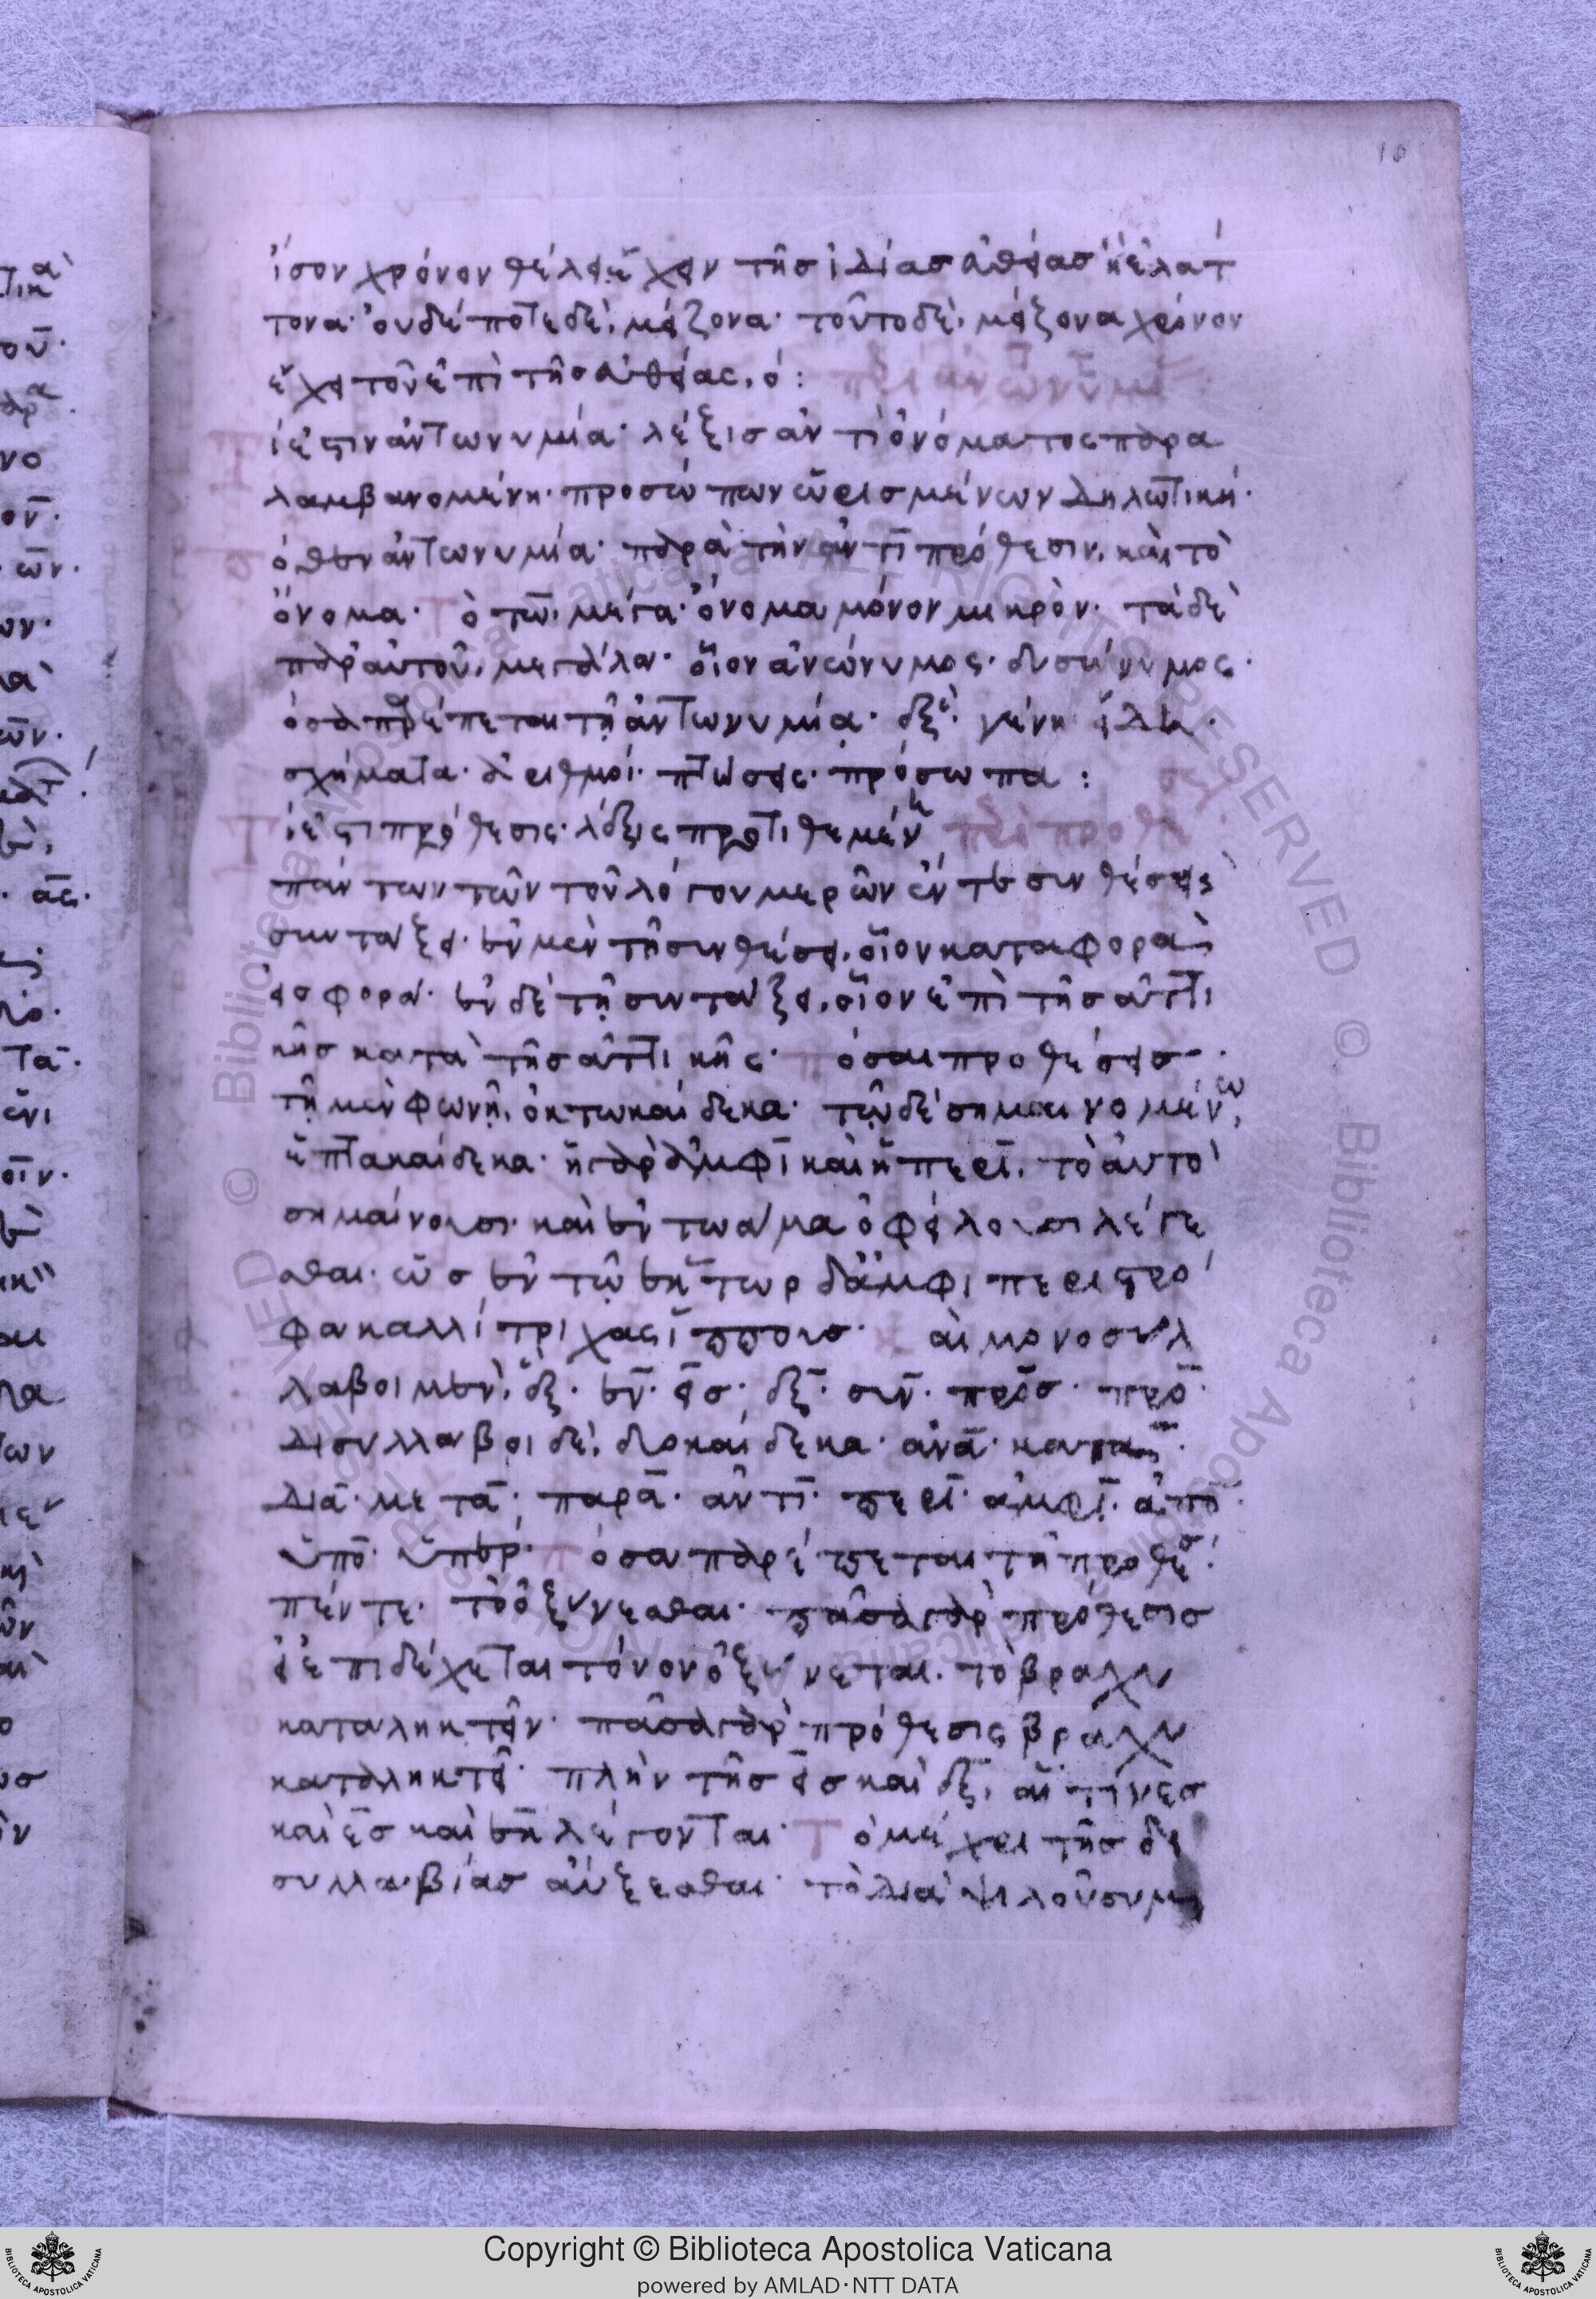 10
ἴσον χρόνον θέλει ἔχειν τῆς ἰδίας εὐθείας ἢ ἐλάτ
τονα· οὐδέ ποτε δὲ, μείζονα· τοῦτο δὲ, μείζονα χρόνον
ἔχει τοῦ ἐπὶ τῆς εὐθείας, ὁ :
Τί ἐστιν ἀντωνυμία· λέξις ἀντὶ ὀνόματος παρα
λαμβανομένη· προσώπων ὡρισμένων δηλωτικὴ·
πόθεν ἀντωνυμία· παρὰ τὴν ἀντὶ πρόθεσιν, καὶ τὸ
ὄνομα· Τὸ τω, μέγα· ὄνομα μόνον μικρὸν· τὰ δὲ
παρ' αὐτοῦ, μεγάλα· οἷον ἀνώνυμος· δυσώνυμος·
πόσα παρέπεται τῇ ἀντωνυμίᾳ· ἕξ· γένη εἴδη·
σχήματα· ἀριθμοί· πτώσεις· πρόσωπα :
Τί ἐστι πρόθεσις· λέξις προτιθεμένη περὶ προθέσ
πάντων τῶν τοῦ λόγου μερῶν ἔν τε συνθέσει
συντάξει· ἐν μὲν τῇ συνθέσει, οἷον καταφορὰ
εἰσφορά· ἐν δὲ τῇ συντάξει, οἷον ἐπὶ τῆς ἀττι
κῆς κατὰ τῆς ἀττικῆς· πόσαι προθέσεις·
τῇ μὲν φωνῇ, ὀκτωκαίδεκα· τῷ δὲ σημαινομένω,
ἑπτακαίδεκα· ἡ γὰρ ἀμφὶ καὶ ἡ περὶ, τὸ αὐτὸ
σημαίνουσι· καὶ ἐν τω ἅμα ὀφείλουσι λέγε
σθαι· ὡς ἐν τῷ ἕκτωρ δ' ἀμφιπεριστρώ
φα καλλίτριχας ἵππους· κ αἱ μονοσυλ
λαβοι μὲν, ἕξ· ἐν· εἰς· ἐξ· σὺν· πρὸς· πρὸ·
δισύλλαβοι δὲ, δυοκαίδεκα· ἀνὰ· κατὰ·
διὰ· μετὰ· παρὰ· ἀντὶ· περὶ· ἀμφὶ· ἀπὸ·
ὑπὸ· ὑπὲρ· πόσα παρέπεται τῇ προθέσ·
πέντε· τὸ ὀξύνεσθαι· πᾶσα γὰρ πρόθεσις
εἰ ἐπιδέχεται τόνον ὀξύνεται· τὸ βραχυ
καταληκτεῖν· πᾶσα γὰρ πρόθεσις βραχυ
καταληκτεῖ· πλὴν τῆς εἰς καὶ ἐξ, αἵτινες
καὶ ἐς καὶ ἐκ λέγονται· Τὸ μέχρι τῆς δι
συλλαβίας αὔξεσθαι· τὸ διὰ ψιλοῦ συμ
Copyright © Biblioteca Apostolica Vaticana
powered by AMLAD·NTT DATA